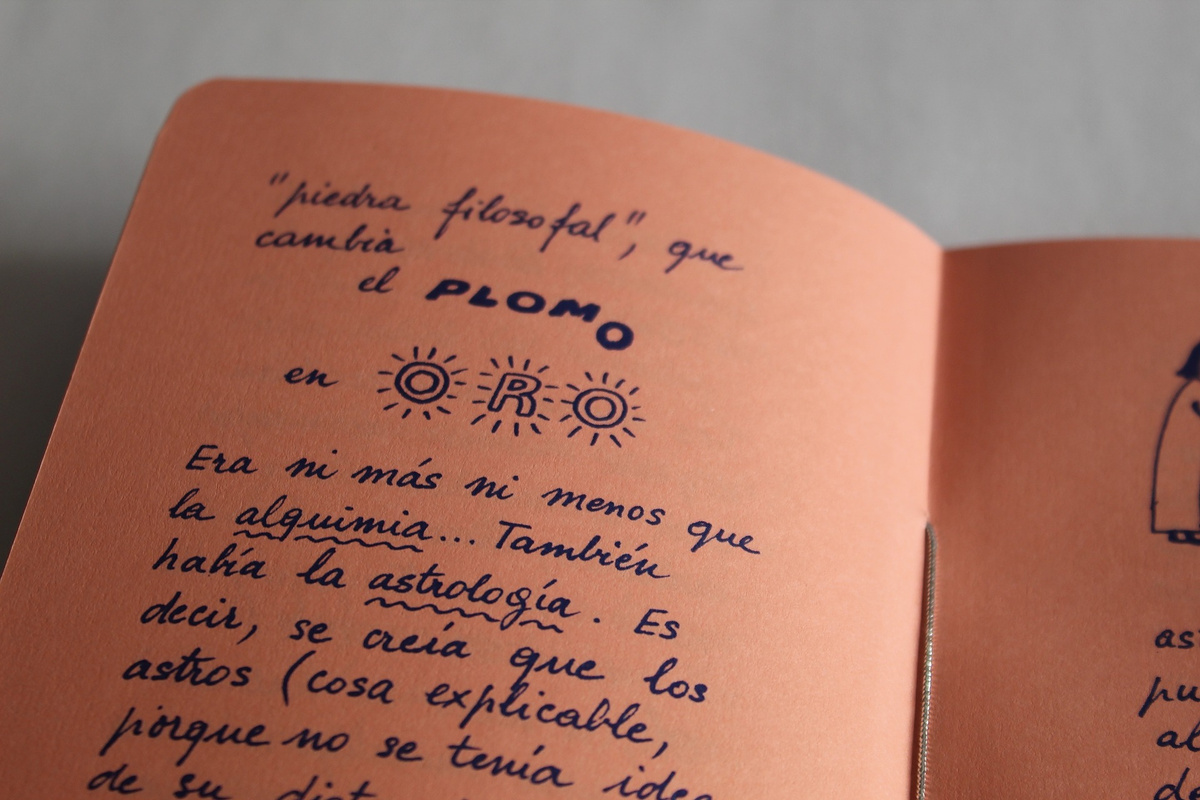 "piedra filosofal", que
cambia
el PLOMO
en ORO
Era ni más ni menos que
la alquimia... También
había la astrología. Es
decir, se creía que los
astros (cosa explicable,
porque no se tenía idea
de su
as
pu
al
de